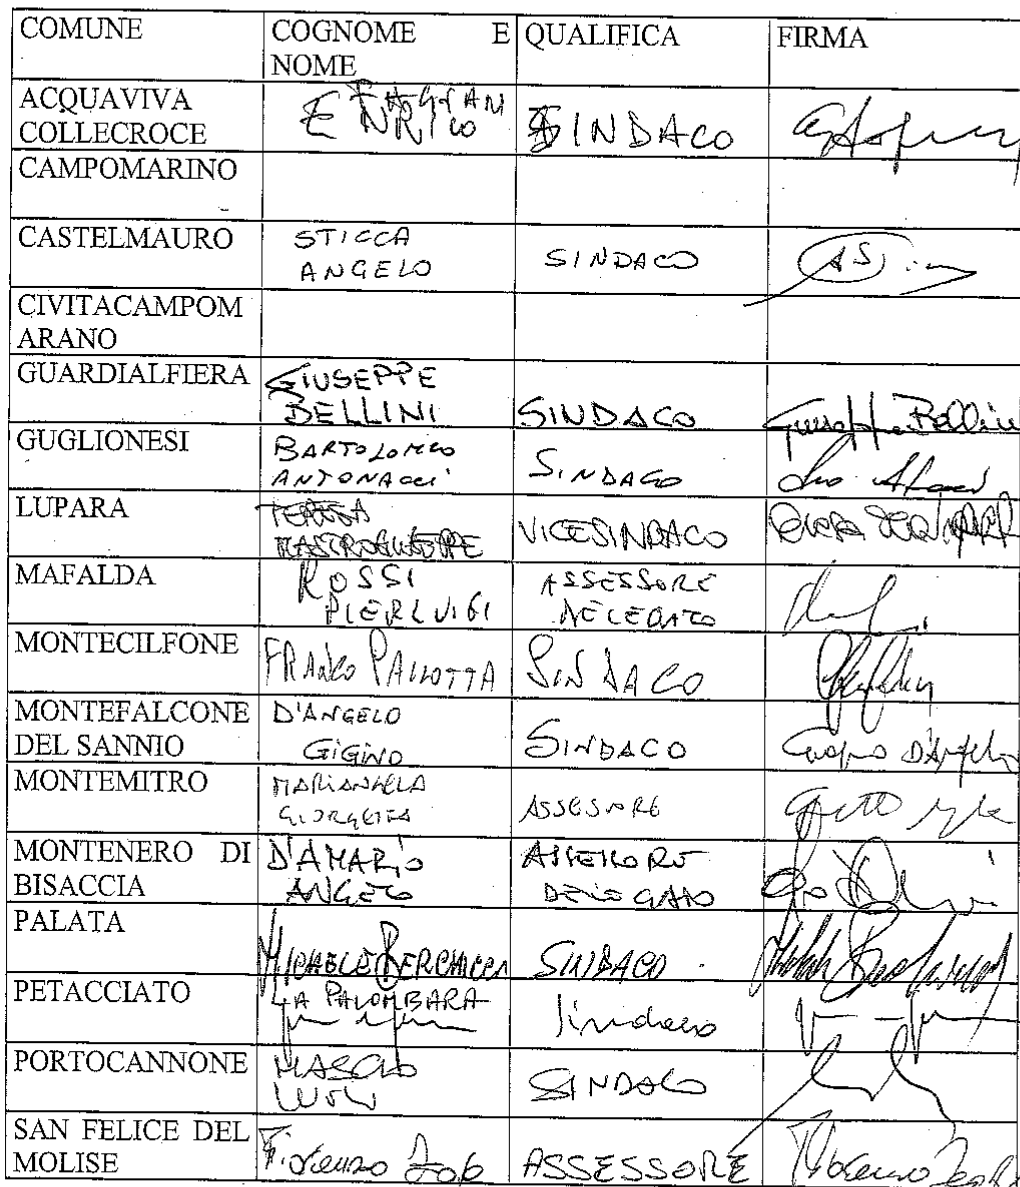 COMUNE COGNOME E NOME QUALIFICA FIRMA
ACQUAVIVA COLLECROCE ENRICO FAGNANI SINDACO
CAMPOMARINO
CASTELMAURO STICCA ANGELO SINDACO
CIVITACAMPOMARANO
GUARDIALFIERA GIUSEPPE BELLINI SINDACO Giuseppe Bellini
GUGLIONESI BARTOLOMEO ANTONACCI SINDACO
LUPARA TERESA MASTROGIUSEPPE VICESINDACO
MAFALDA ROSSI PIERLUIGI ASSESSORE DELEGATO
MONTECILFONE FRANCO PALLOTTA SINDACO
MONTEFALCONE DEL SANNIO D'ANGELO GIGINO SINDACO Gigino D'Angelo
MONTEMITRO MARIANGELA GIORGETTA ASSESSORE
MONTENERO DI BISACCIA D'AMARIO ANGELO ASSESSORE DELEGATO
PALATA MICHELE BERCHICCI SINDACO
PETACCIATO LA PALOMBARA Sindaco
PORTOCANNONE MASCIO LUIGI SINDACO
SAN FELICE DEL MOLISE Fiorenzo ASSESSORE Fiorenzo